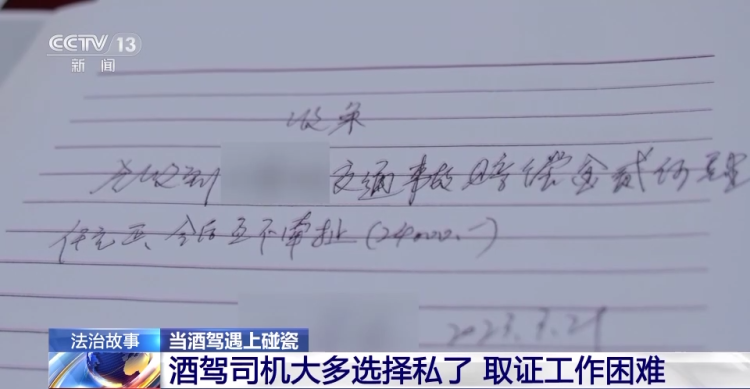 CCTV 13
新闻
收条
今收到 交通事故赔偿金贰万肆
仟元正、今后互不牵扯(24000.-)
法治故事 当酒驾遇上碰瓷
酒驾司机大多选择私了 取证工作困难